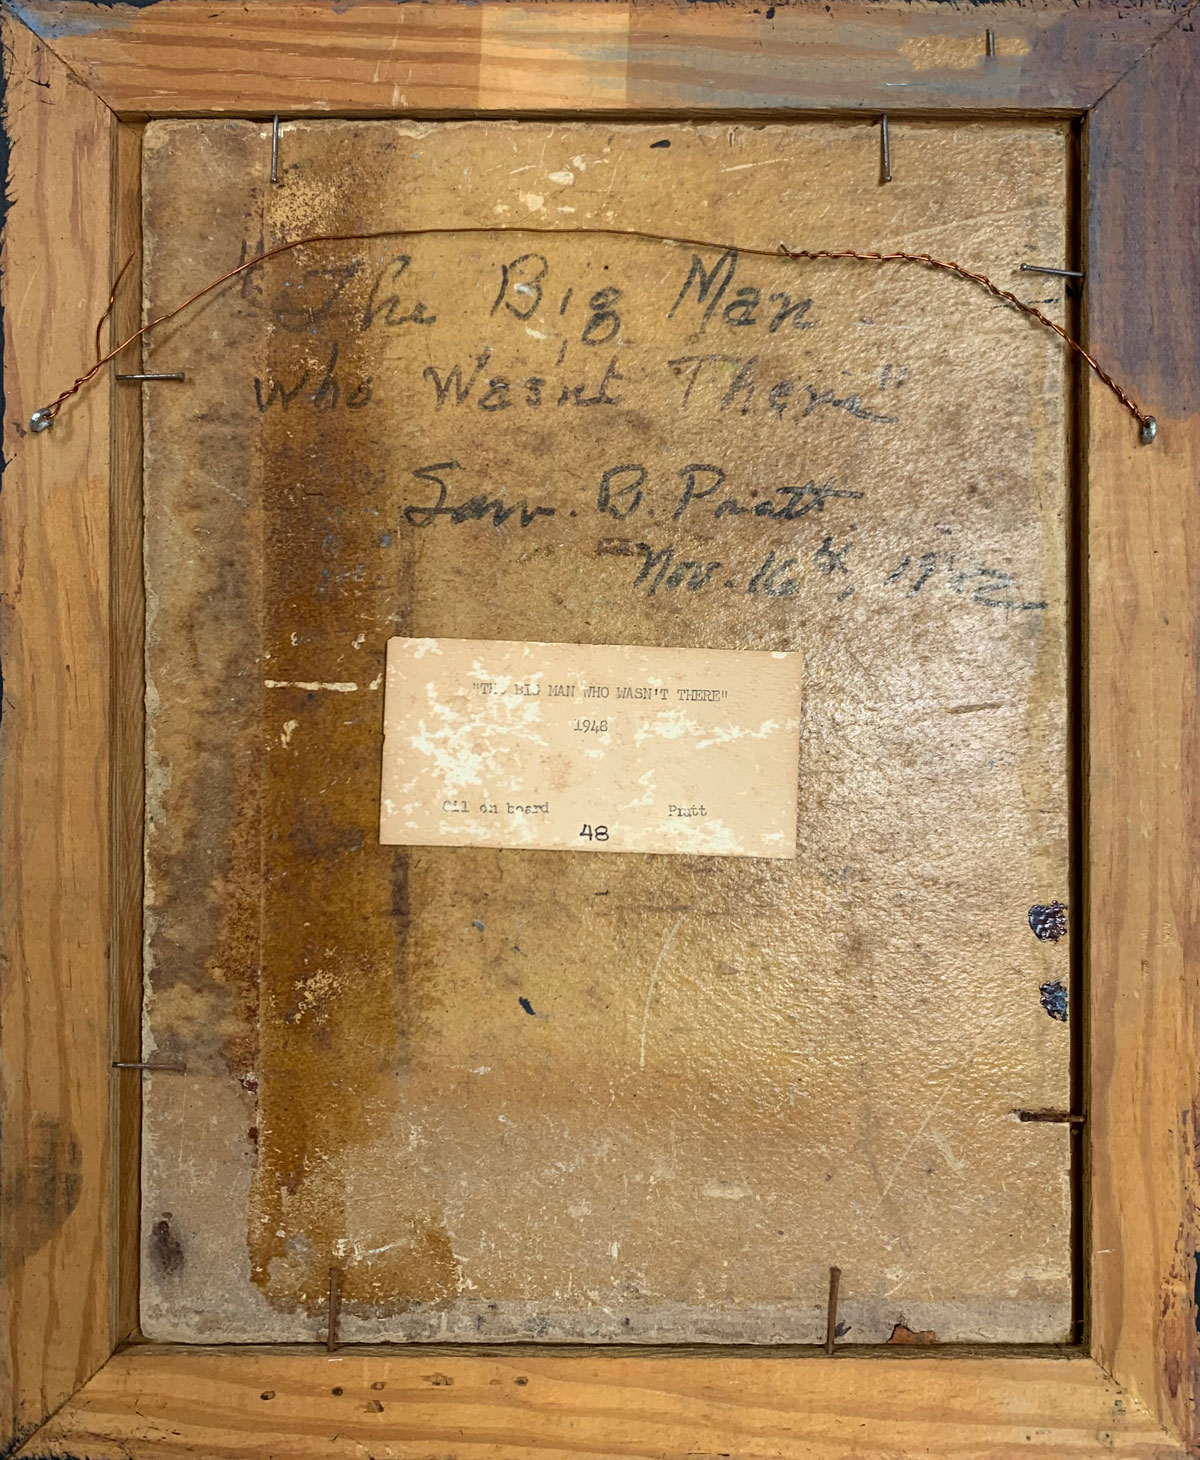 "The Big Man
who Wasn't There"
Sam. B. Pratt
Nov. 16th,
"THE BIG MAN WHO WASN'T THERE"
1948
Oil on board Pratt
48